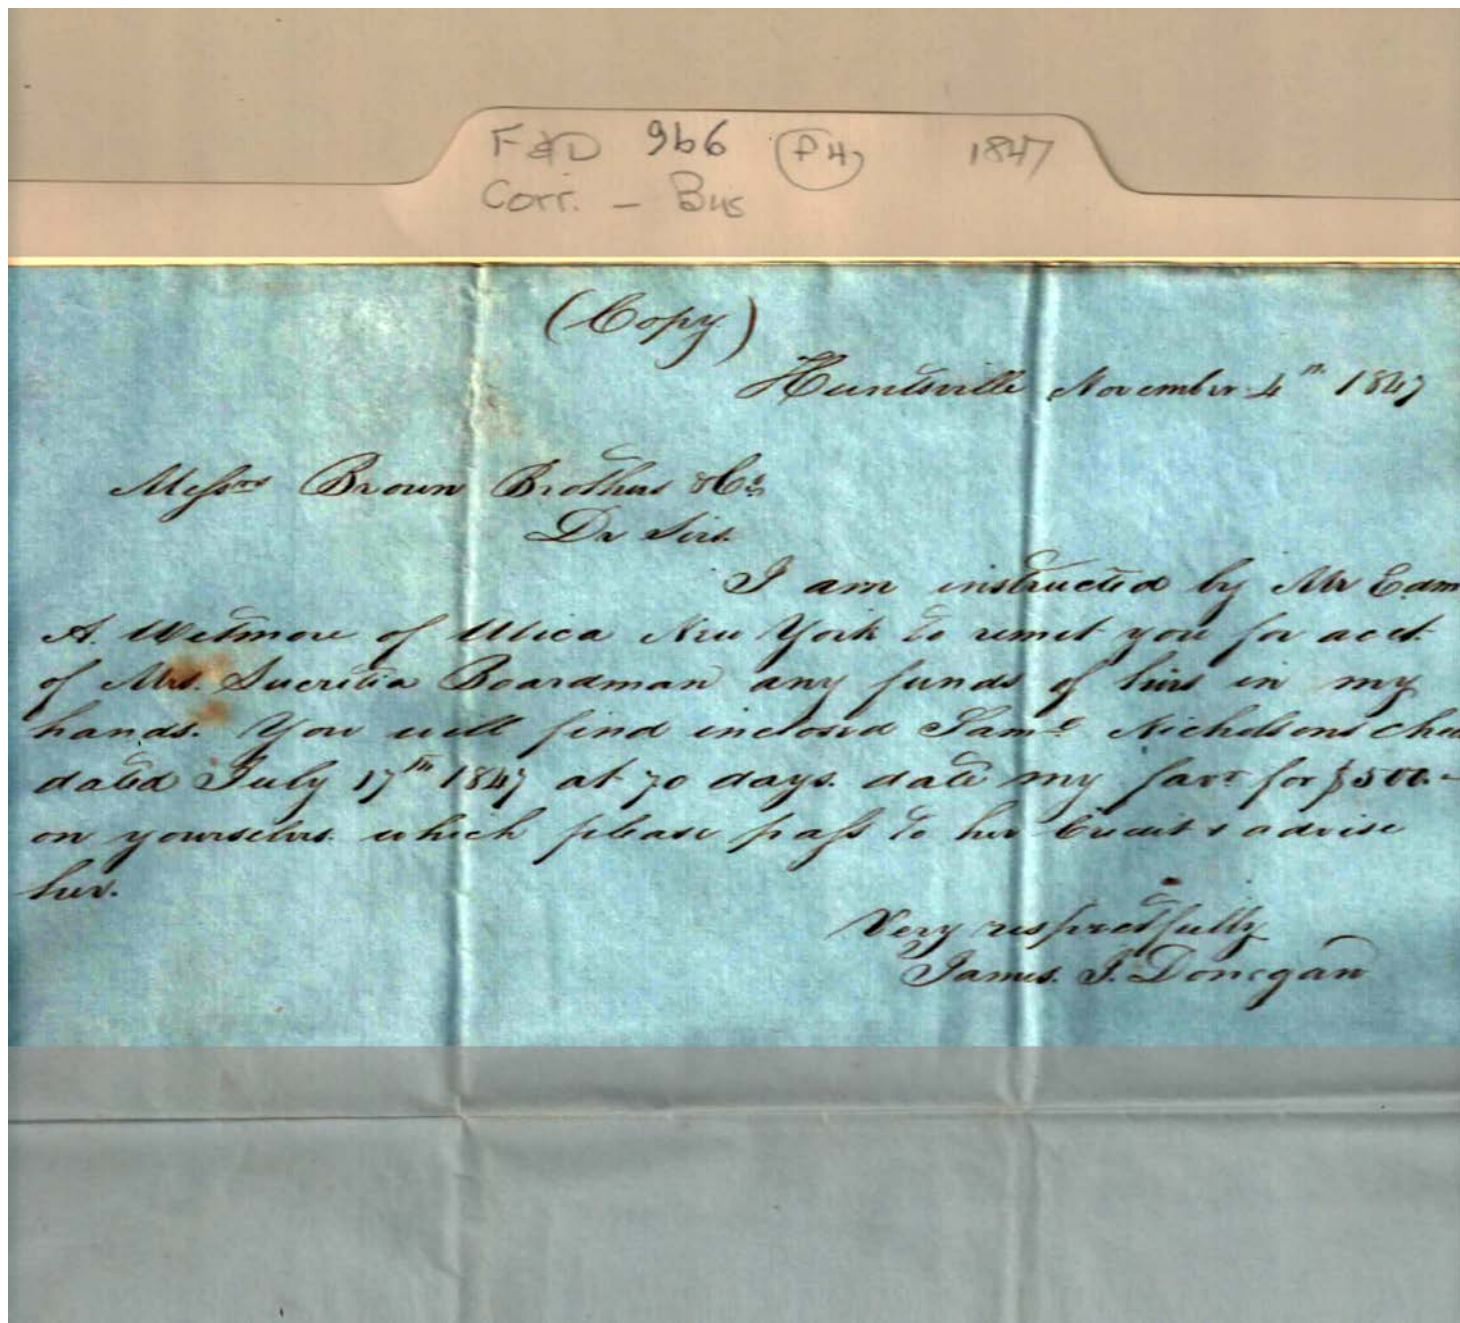 F&D 9b6 (P4) 1847
Corr. - Bus
(Copy)
Huntsville November 4th 1847
Messrs Brown Brothers & Co
Dr Sirs.
I am instructed by Mr Edm
A. Wetmore of Utica New York to remit you for acct.
of Mrs. Lucretia Boardman any funds of hers in my
hands. You will find inclosed Saml Nicholsons che
dated July 17th 1847 at 70 days. date my favr for $500.-
on yourselves. which please pass to her Credit & advise
her.
Very respectfully
James. J. Donegan